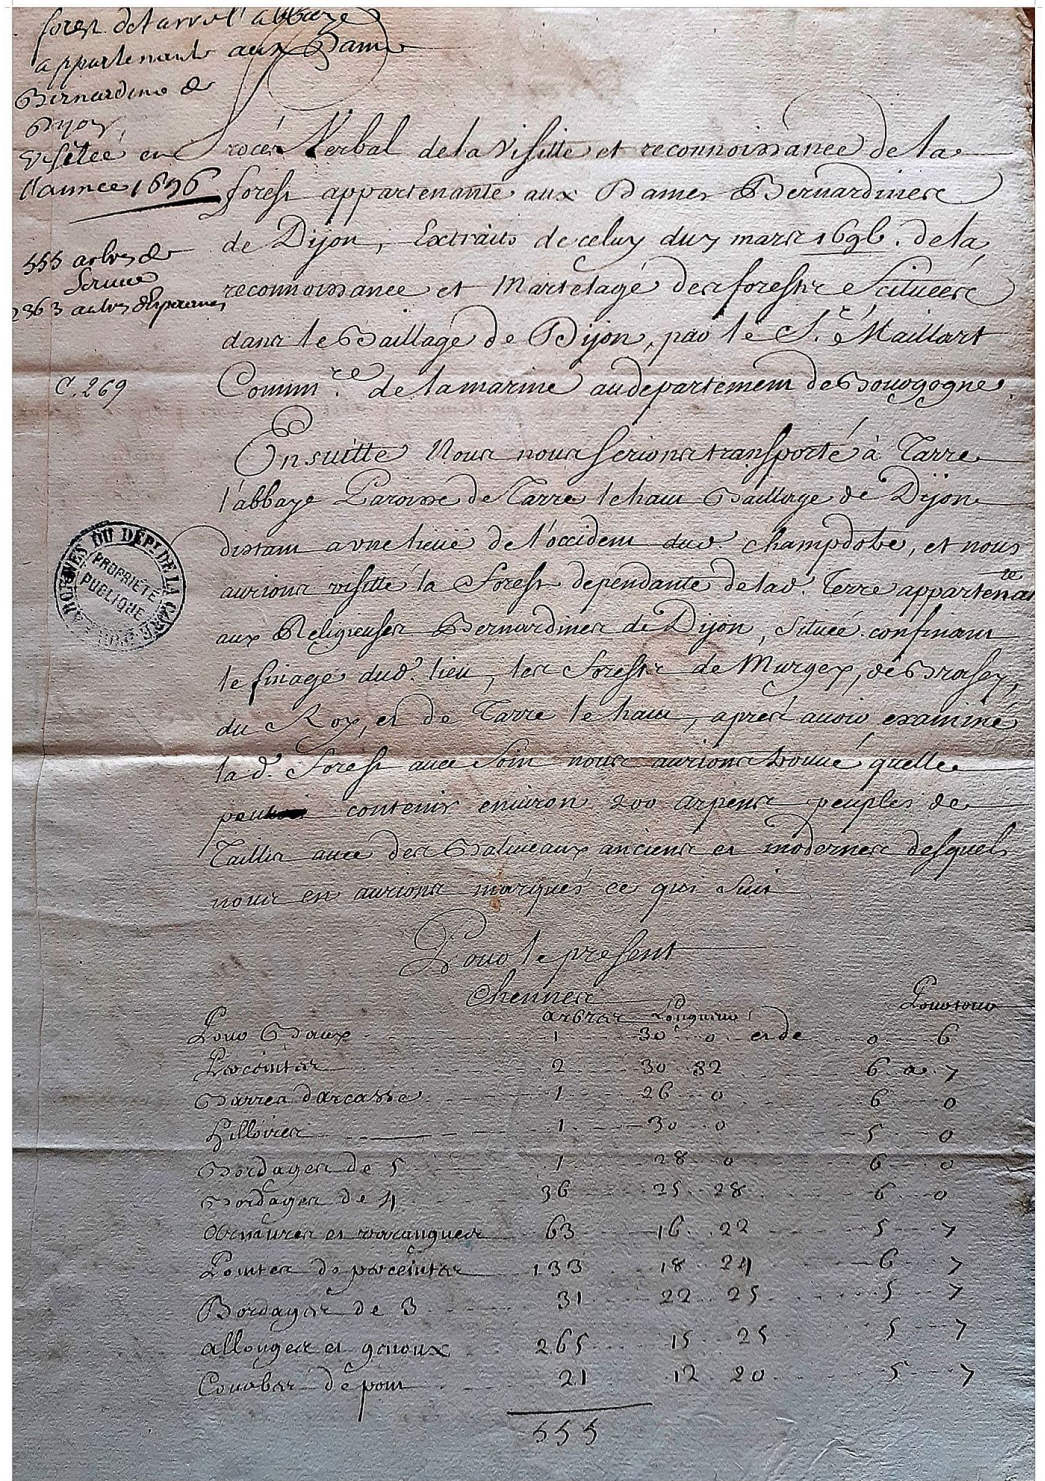 forest de tarre l'abbaye
appartenante aux Dames
Bernardines de
Dijon,
Visitée en
l'année 1696
555 arbres de
Service
2363 arbres d'esperances
C. 269
Procés Verbal de la Visitte et reconnoissance de la
forest appartenante aux Dames Bernardines
de Dijon, Extraits de celuy du 7 mars 1696. de la
reconnoissance et Martelage des forests scituées
dans le Baillage de Dijon, par le S.r Maillart
Comm.re de la marine au departement de Bourgogne.
Ensuitte Nous nous serions transporté à Tarre
l'abbaye Paroisse de Tarre le haut Baillage de Dijon
distant a une lieüe de l'occident dud. champdobe, et nous
aurions visitté la Forest dependante de lad. Terre appartenante
aux Religieuses Bernardines de Dijon, située confinant
le finage dud. lieu, les forests de Murgey, de Brosey,
du Roy, et de Tarre le haut, aprés avoir examiné
lad. Forest avec soin nous aurions trouvé quelle
peut contenir environ 200 arpens peuplés de
Taillis avec des Baliveaux anciens et modernes desquels
nous en aurions marqués ce qui suit
Pour le present
Chennes
arbres Longueurs Pourtour
Pour Baux 1 30 0 et de 0 6
Precintes 2 30 32 6 a 7
Barres d'arcasse 1 26 0 6 0
Hilloires 1 30 0 5 0
Bordages de 5 1 28 0 6 0
Bordages de 4 36 25 28 6 0
Varangues 63 16 22 5 7
Pointes de precintes 133 18 24 6 7
Bordages de 3 31 22 25 5 7
allonges et genoux 265 15 25 5 7
Courbes de pont 21 12 20 5 7
555
ARCHIVES DU DÉPt DE LA CÔTE D'OR
PROPRIÉTÉ
PUBLIQUE